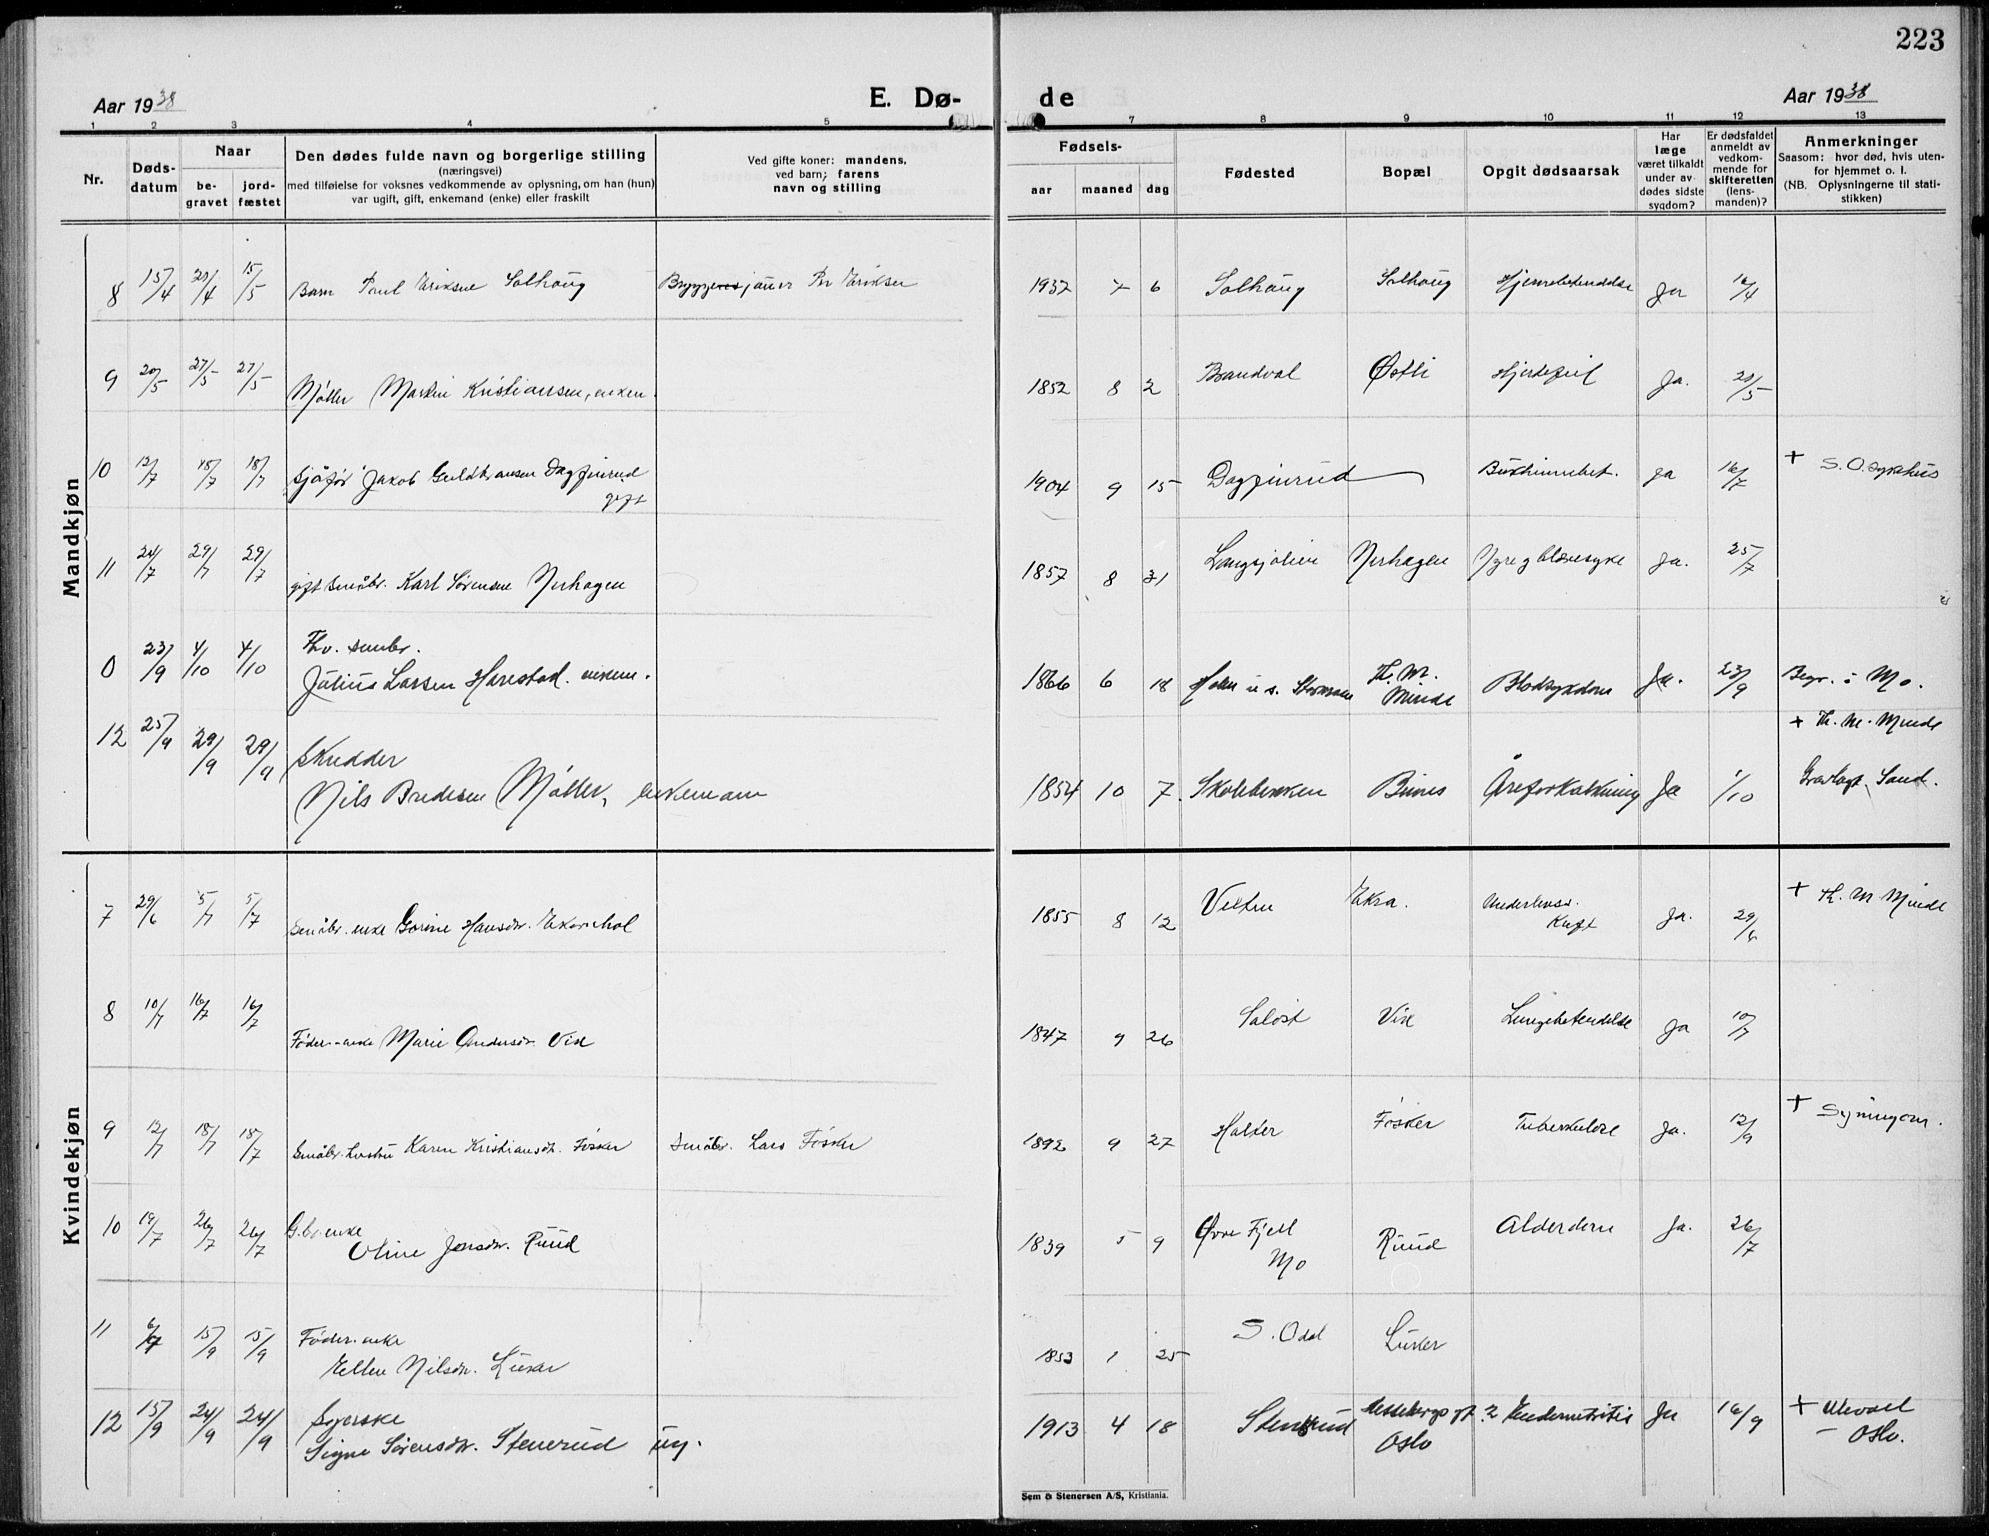 223
Aar 1938 E. Dø- de Aar 1938
1 2 3 4 5 6 7 8 9 10 11 12 13
Nr.
Døds-
datum
Naar
be-
gravet
jord-
fæstet
Den dødes fulde navn og borgerlige stilling
(næringsvei)
med tilføielse for voksnes vedkommende av oplysning, om han (hun)
var ugift, gift, enkemand (enke) eller fraskilt
Ved gifte koner: mandens,
ved barn; farens
navn og stilling
Fødsels-
aar maaned dag
Fødested
Bopæl
Opgit dødsaarsak
Har
læge
været tilkaldt
under av-
dødes sidste
sygdom?
Er dødsfaldet
anmeldt av
vedkom-
mende for
skifteretten
(lens-
manden)?
Anmerkninger
Saasom: hvor død, hvis uten-
for hjemmet o. l.
(NB. Oplysningerne til stati-
stikken)
Mandkjøn
8 15/4 20/4 15/5 Barn Paul Eriksen Solhaug Per Eriksen 1937 7 6 Solhaug Solhaug Hjernebetendelse Ja 16/4
9 20/5 27/5 27/5 Møller Martin Kristiansen, enkem. 1852 8 2 Brandval Østli Hjertefeil Ja. 20/5
10 12/7 18/7 18/7 Sjåfør Jakob Guldbransen Dagfinrud
gift
1904 9 15 Dagfinrud Bukhinnebet. Ja 16/7 + S. O. sykehus
11 24/7 29/7 29/7 gift småbr. Karl Sørensen Nerhagen 1857 8 31 Langsjølien Nerhagen Nyre og blæresyke Ja. 25/7
0 23/9 4/10 4/10 Fhv. småbr.
Julius Larsen Harestad. enkem. 1866 6 18 Th. M.
Minde Blodsykdom Ja. 23/9 Begr. i Mo.
+ Th. M. Minde
12 25/9 29/9 29/9 Skredder
Nils Bredesen Møller, enkemann 1854 10 7. Skolebakken Bruvos Åreforkalkning Ja 1/10 Gravlagt Sand.
Kvindekjøn
7 29/6 5/7 5/7 Småbr. enke Gorine Hansdr. Ekornhol 1855 8 12 Velten Ekra. Underlivs-
Kreft Ja. 29/6 + Th. M. Minde
8 10/7 16/7 16/7 Føder.-enke Marie Andersdr. Vik 1847 9 26 Saløst Vik Lungebetendelse Ja 10/7
9 12/7 18/7 18/7 Småbr. hustru Karen Kristiansdr. Fösker Småbr. Lars Fösker 1892 9 27 Halter Fösker Tuberkulose Ja. 12/9 +
10 19/7 26/7 26/7 G.br.enke
Oline Jensdr. Ruud 1839 5 9 Øvre Fjell
Mo Ruud Alderdom Ja. 26/7
11 6/9 15/9 15/9 Føder.-enke
Ellen Nilsdr. Luker 1853 1 25 S. Odal Luker
12 15/9 24/9 24/9 Syerske
Signe Sørensdr. Stenerud ug. 1913 4 18 Stenrud Messebergs gt. 2
Oslo Endometritis Ja 16/9 + Ulevaal
- Oslo.
Sem & Stenersen A/S, Kristiania.